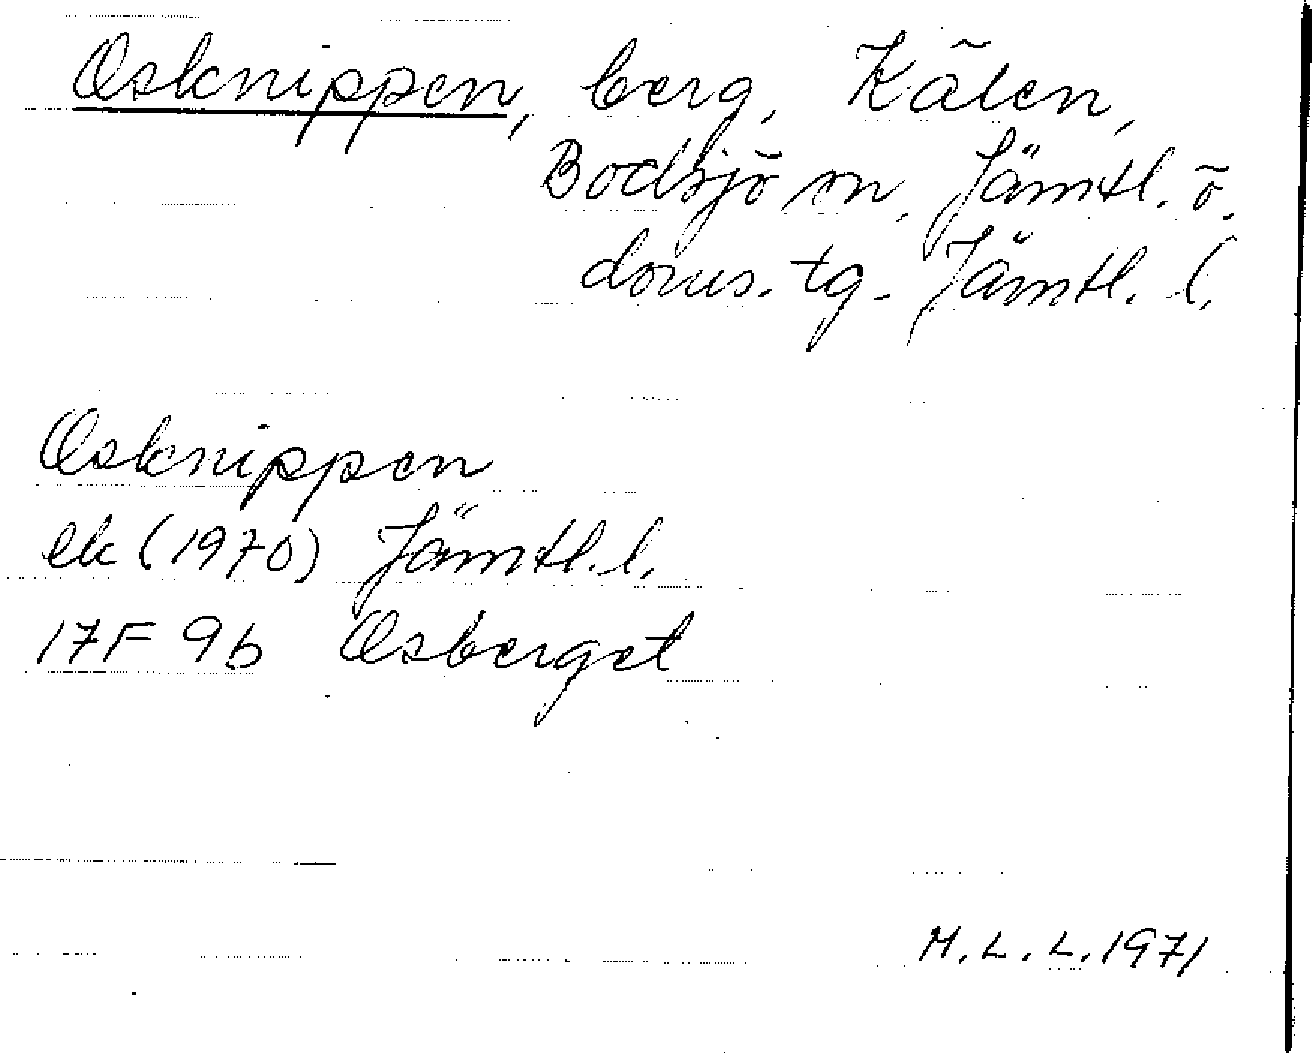 Osknippen, berg, Kälen,
Bodsjö sn, Jämtl. ö.
doms. tg. Jämtl. l.
Osknippen
ek (1970) Jämtl. l.
17F 9b Osberget
M. L. L. 1971